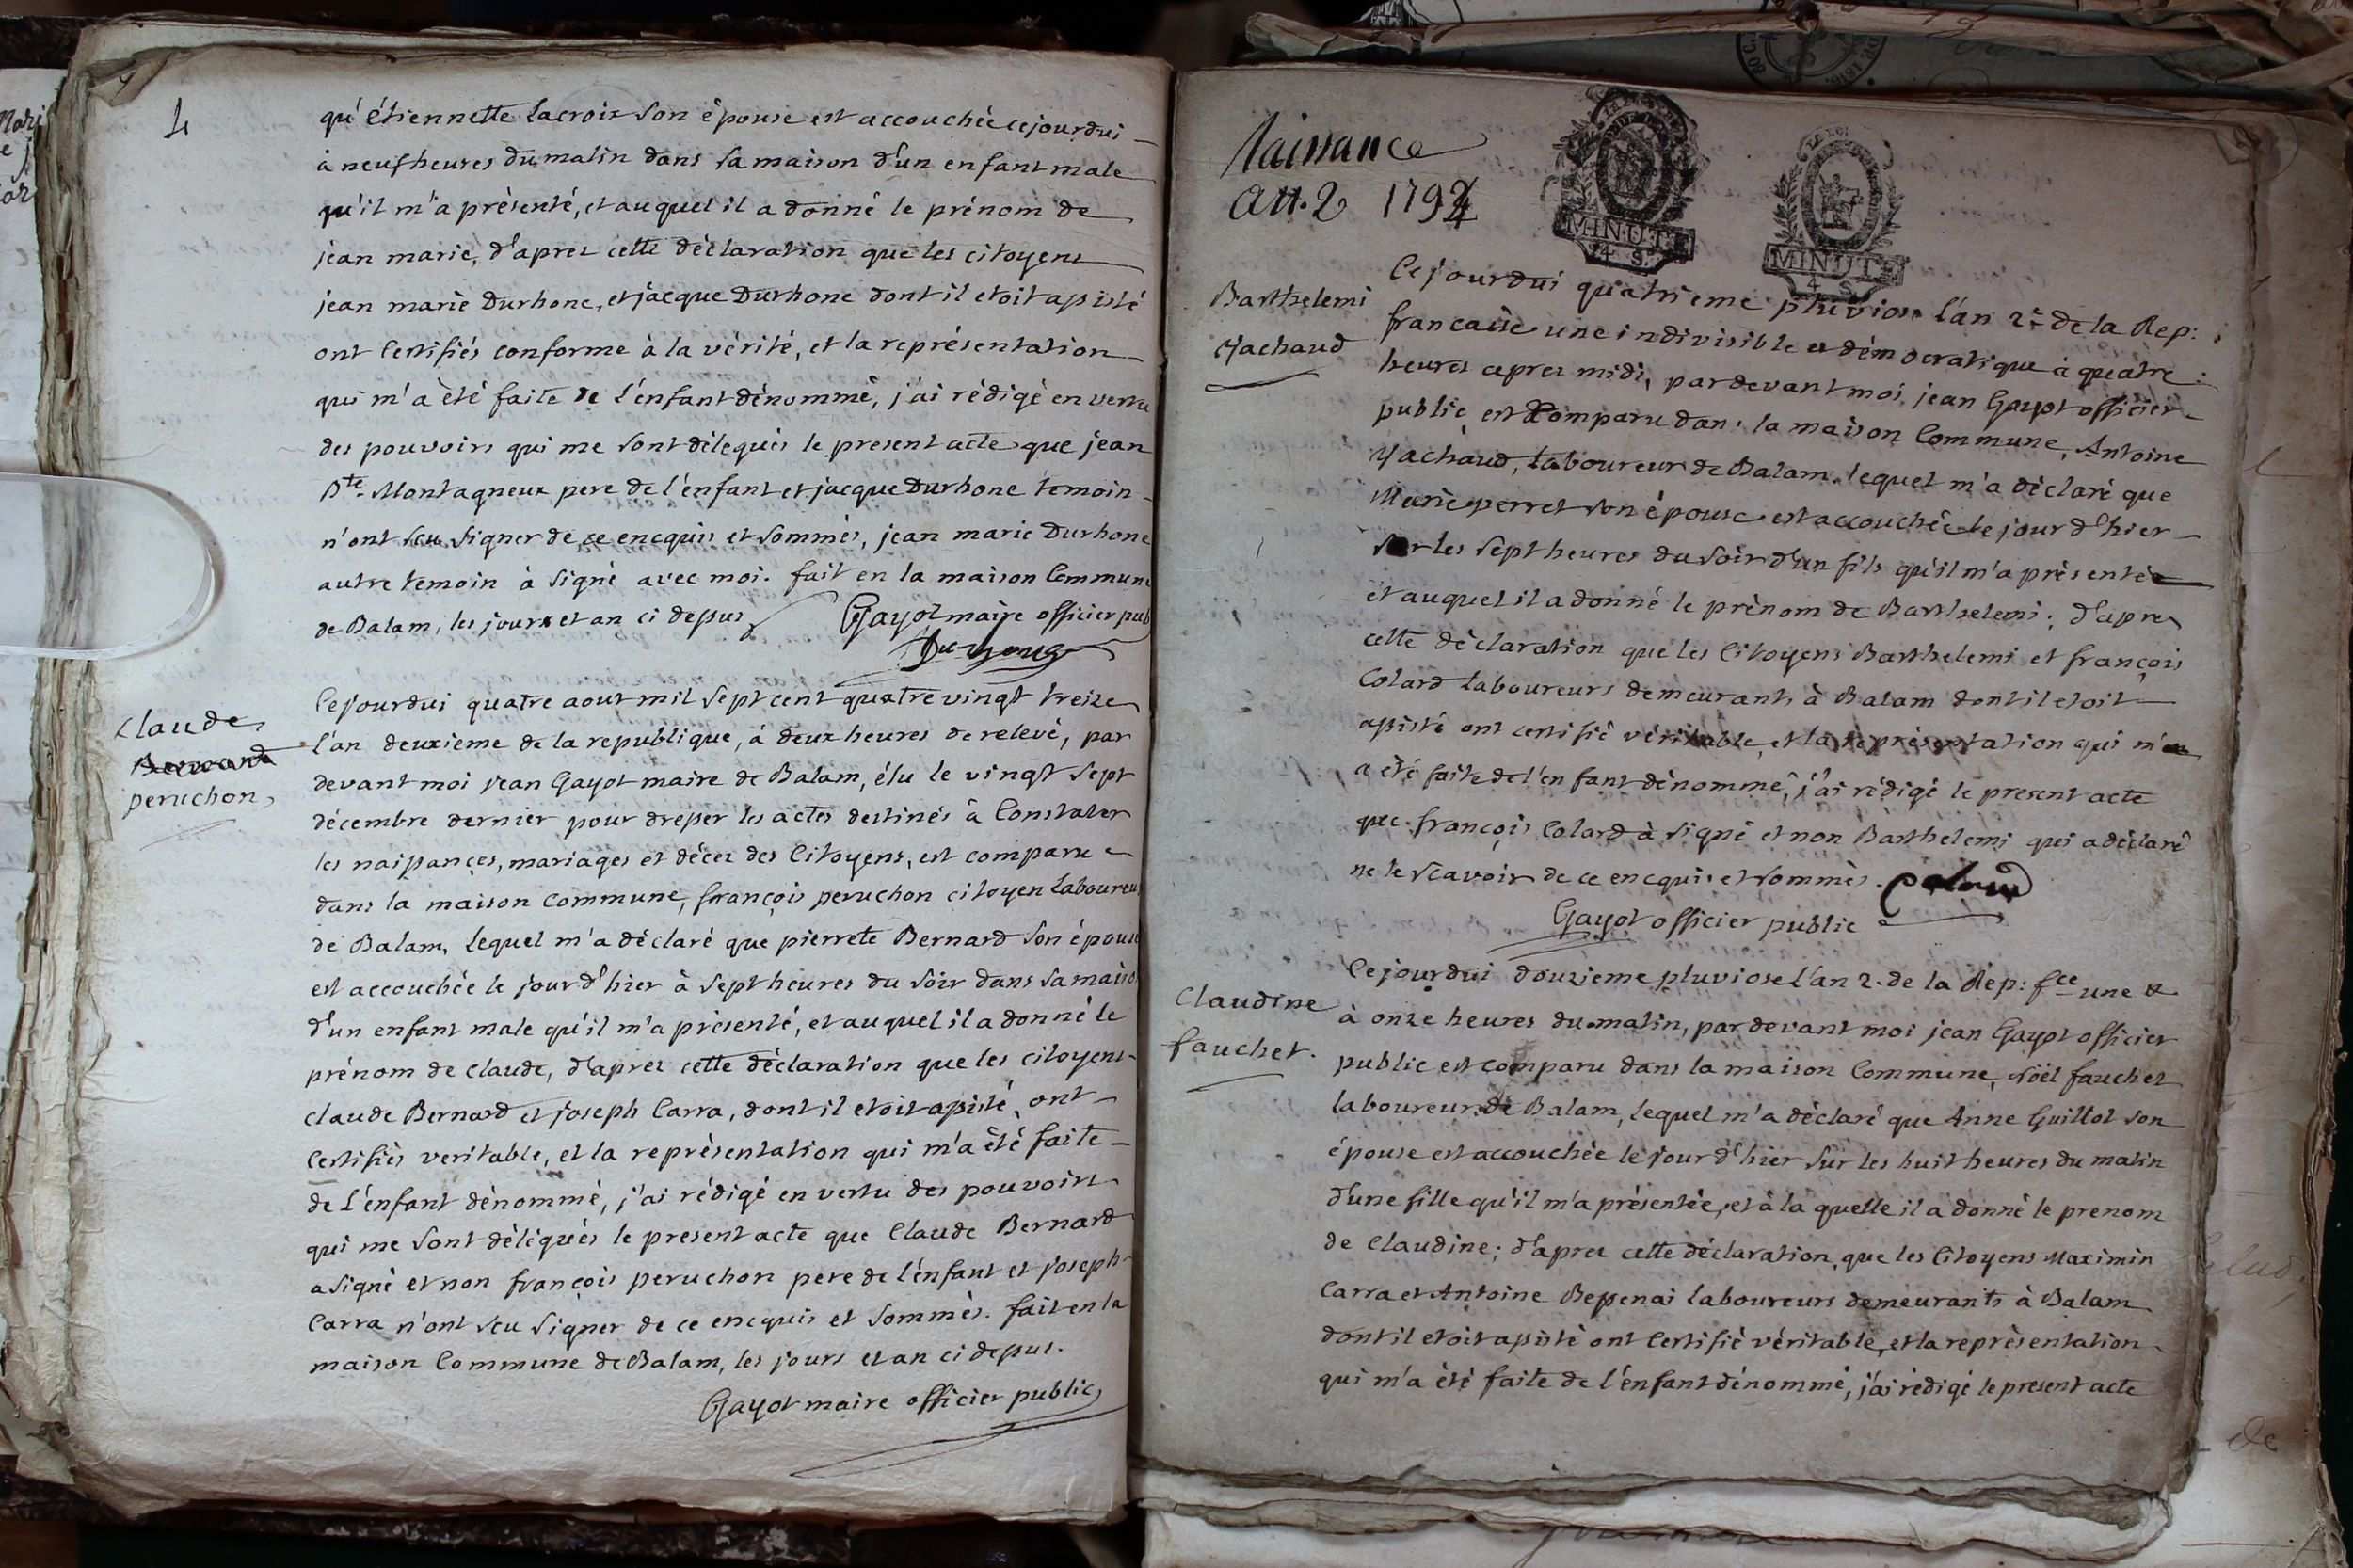 4
qu'étiennette Lacroix son épouse est accouchée cejourdui
à neuf heures du matin dans sa maison d'un enfant male
qu'il m'a présenté, et auquel il a donné le prénom de
jean marie, d'apres cette déclaration que les citoyens
jean marie Durhone, et jacque Durhone dont il etoit assisté
ont certifiés conforme à la vérité, et la représentation
qui m'a été faite de l'énfant dénommé, j'ai rédigé en vertu
des pouvoirs qui me sont délegués le present acte que jean
Bte. Montagneux pere de l'énfant et jacque Durhone temoin
n'ont sçu signer de ce encquis et sommés, jean marie Durhone
autre temoin à signé avec moi. fait en la maison Commune
de Balam, les jours et an ci dessus
Gayot maire officier pub
Durhone
Claude
Bernard
peruchon
Cejourdui quatre aout mil sept cent quatre vingt treize
l'an deuxieme de la republique, à deux heures de relevé, par
devant moi jean Gayot maire de Balam, élu le vingt sept
décembre dernier pour dresser les actes destinés à Constater
les naissances, mariages et déces des Citoyens, est comparu
dans la maison commune, françois peruchon citoyen Laboureur
de Balam, Lequel m'a déclaré que pierrete Bernard son épouse
est accouchée le jour d'hier à sept heures du soir dans sa maiso
d'un enfant male qu'il m'a présenté, et auquel il a donné le
prénom de claude, d'apres cette déclaration que les citoyens
claude Bernard et joseph Carra, dont il etoit assisté, ont
Certifiés veritable, et la représentation qui m'a été faite
de l'énfant dénommé, j'ai rédigé en vertu des pouvoirs
qui me sont délégués le present acte que Claude Bernard
a signé et non françois peruchon pere de l'énfant et joseph
Carra n'ont sçu signer de ce encquis et sommés. fait en la
maison Commune de Balam, les jours et an ci dessus.
Gayot maire officier public
Naissance
an. 2 1794
MINUT.
4 S.
MINUT.
4 S.
Barthelemi
Machaud
Cejourdui quatrieme pluviose l'an 2e de la Rep:
francaise une indivisible et démocratique à quatre
heures apres midi, pardevant moi jean Gayot officier
public est Comparu dans la maison Commune, Antoine
Machaud, Laboureur de Balam, lequel m'a déclaré que
Marie perret son épouse est accouchée le jour d'hier
sur les sept heures du soir d'un fils qu'il m'a présenté
et auquel il a donné le prénom de Barthelemi; d'apres
cette déclaration que les Citoyens Barthelemi et françois
Colard Laboureurs demeurants à Balam dont il etoit
assisté ont certifié véritable, et la représentation qui m'
a été faite de l'enfant dénommé, j'ai rédigé le present acte
que françois Colard à signé et non Barthelemi qui a déclaré
ne le scavoir de ce encquis et sommés. Colard
Gayot officier public
Claudine
fauchet.
Cejourdui douzieme pluviose l'an 2. de la Rep: fce une &
à onze heures du matin, pardevant moi jean Gayot officier
public est comparu dans la maison Commune, Nöel fauchet
laboureur de Balam, lequel m'a déclaré que Anne Guillot son
épouse est accouchée le jour d'hier sur les huit heures du matin
d'une fille qu'il m'a présentée, et à la quelle il a donné le prenom
de Claudine; d'apres cette déclaration, que les Citoyens Maximin
Carra et Antoine Bessenai laboureurs demeurants à Balam
dont il etoit assisté ont Certifié véritable, et la représentation
qui m'a été faite de l'énfant dénommé, j'ai rédigé le present acte